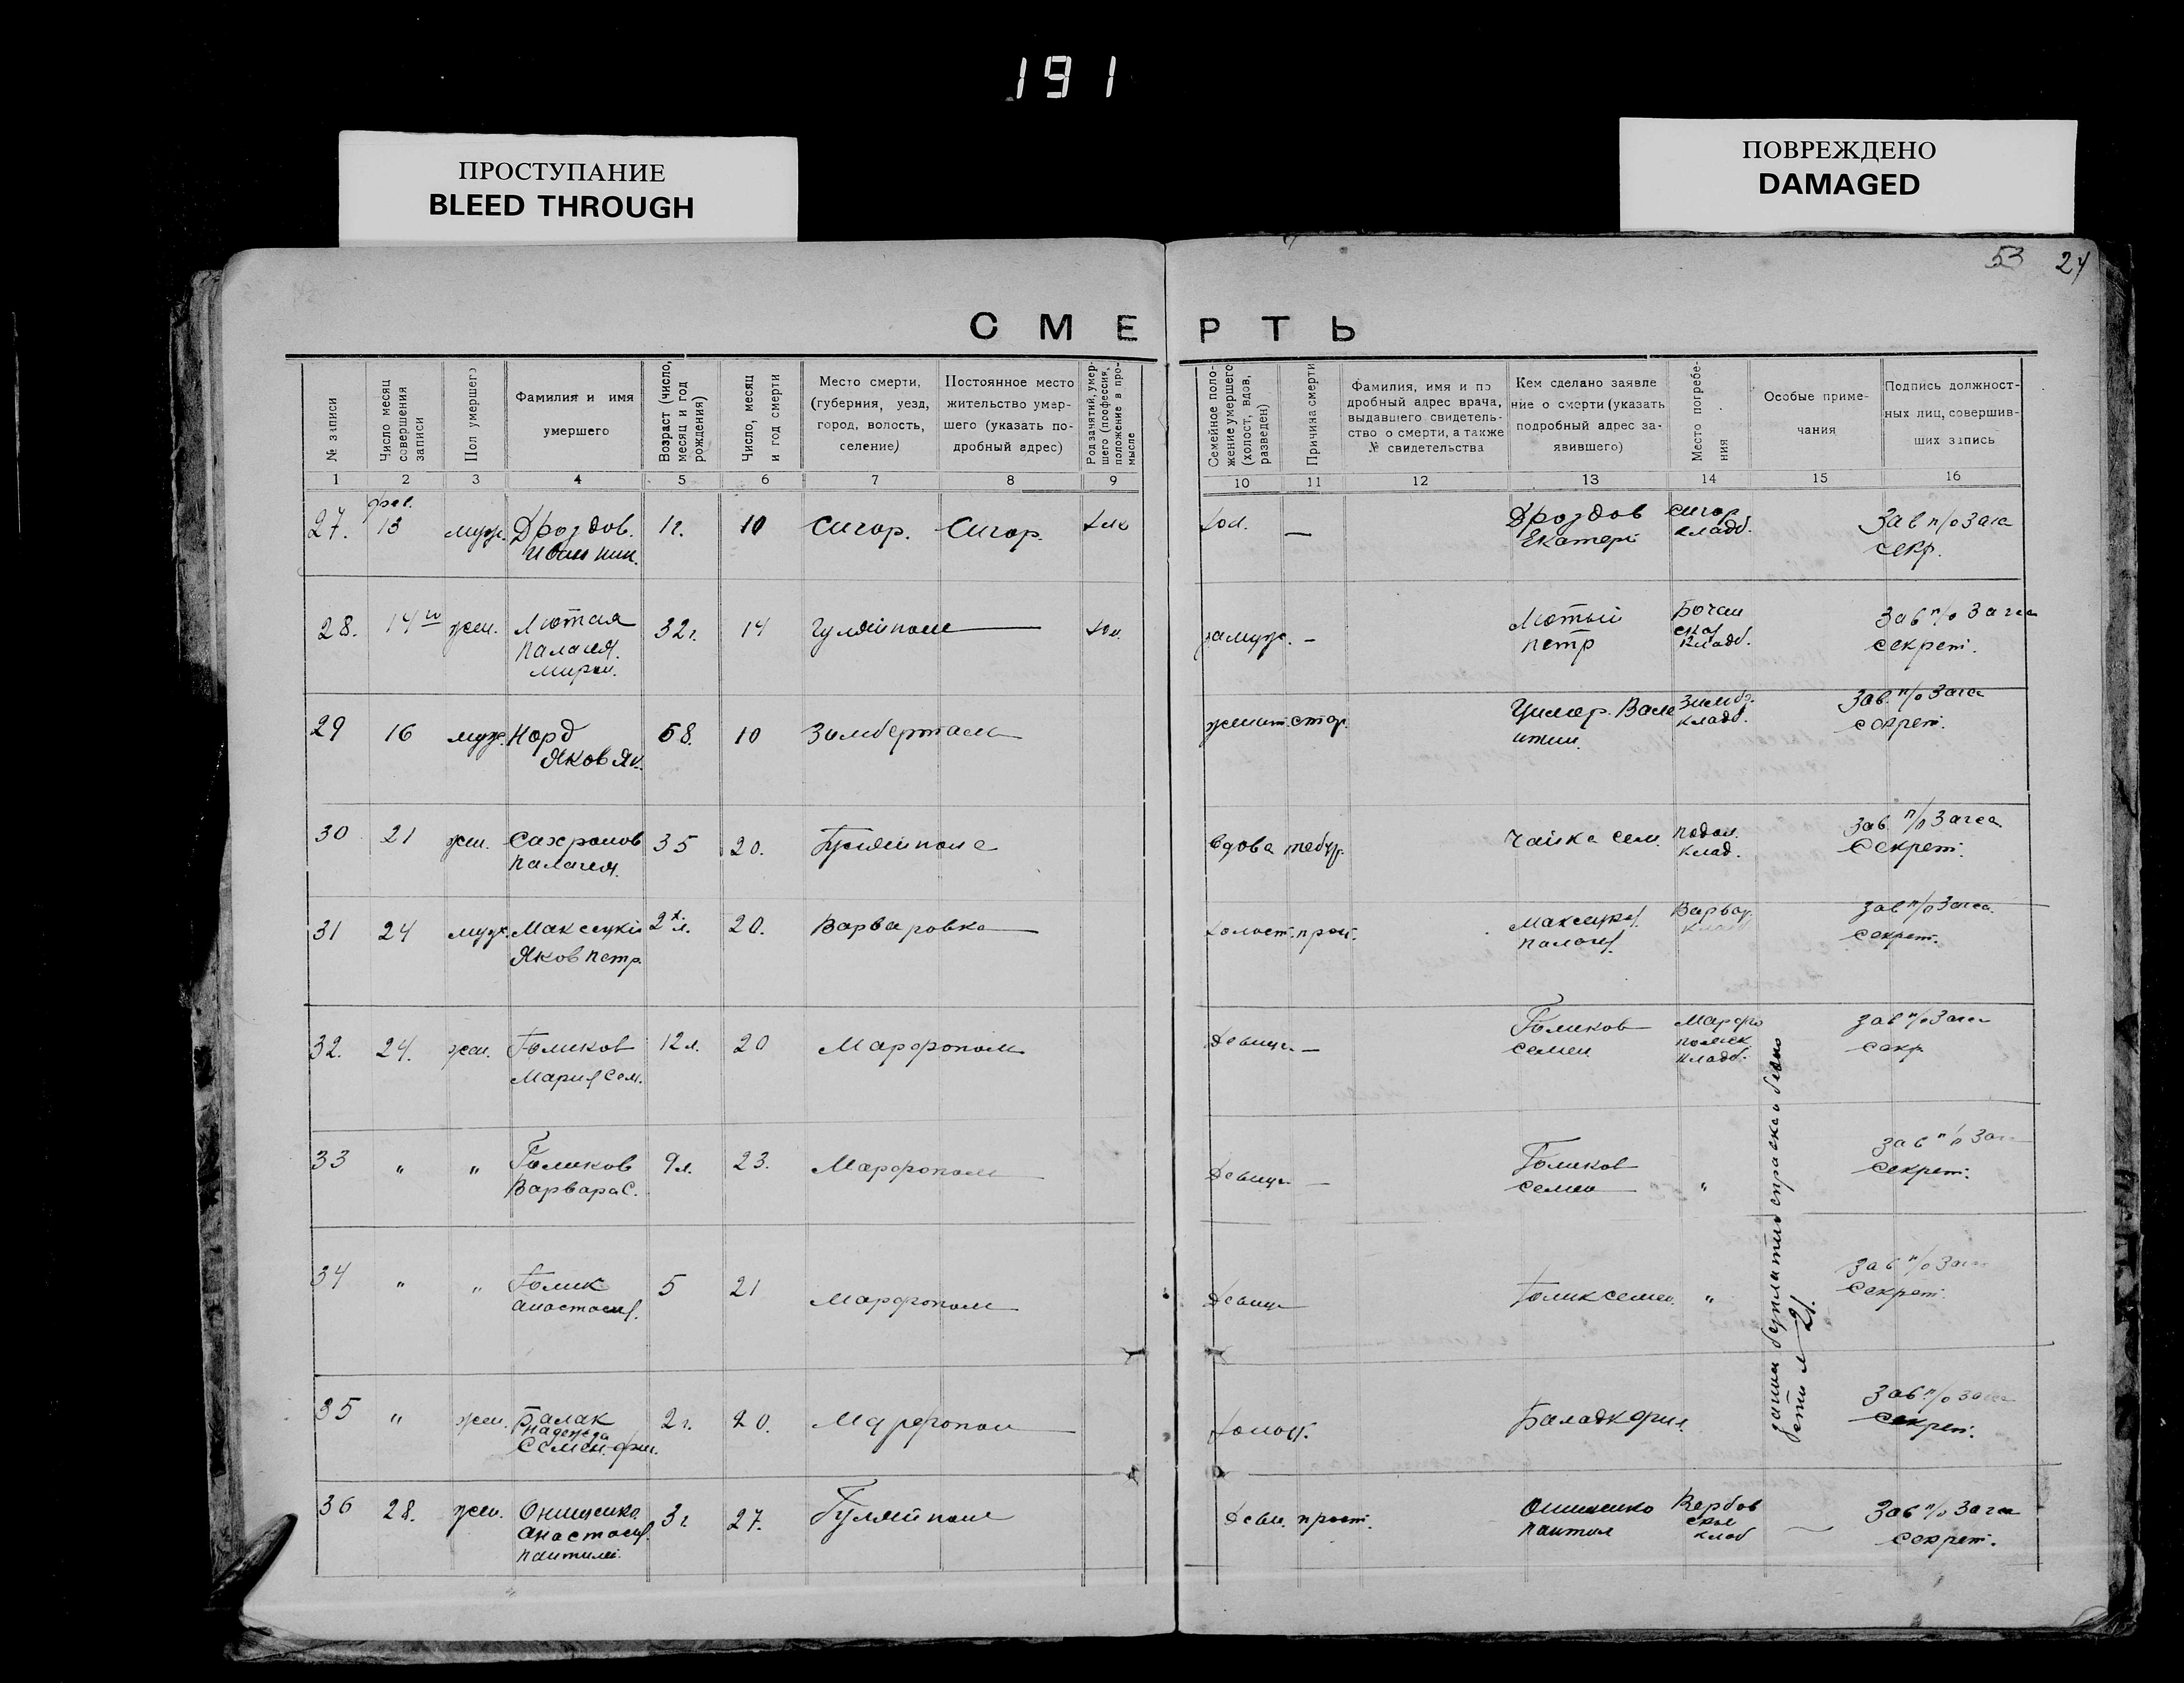 191
ПРОСТУПАНИЕ
BLEED THROUGH
ПОВРЕЖДЕНО
DAMAGED
53 24
СМЕРТЬ
№ записи
Число месяц совершения записи
Пол умершего
Фамилия и имя умершего
Возраст (число, месяц и год рождения)
Число, месяц и год смерти
Место смерти, (губерния, уезд, город, волость, селение)
Постоянное место жительство умершего (указать подробный адрес)
Род занятий, умершего (профессия, положение в промысле
Семейное положение умершего (холост, вдов, разведен)
Причина смерти
Фамилия, имя и подробный адрес врача, выдавшего свидетельство о смерти, а также № свидетельства
Кем сделано заявление о смерти (указать подробный адрес заявившего)
Место погребения
Особые примечания
Подпись должностных лиц, совершивших запись
1 2 3 4 5 6 7 8 9 10 11 12 13 14 15 16
27. фев. 13 муж. Дроздов. Иван ник. 1г. 10 Сигор. Сигор. — Дроздов Екатери сигор кладб. Зав п/о Загса секр.
28. 14го жен. Лютая Палагея. Мирон. 32г. 14 Гуляйполе замуж. – Лютый Петр кладб. Зав п/о Загса секрет.
29 16 муж. Норд Яков Як. 58. 10 Зильберталь женат. стар. кладб. Зав. п/о Загса секрет.
30 21 жен. Сахронов Палагея. 35 20. Гуляйполе вдова тебур. Чайка Сем. подол. клад. Зав п/о Загса Секрет.
31 24 муж. Максецкий Яков Петр. 2 л. 20. Варваровка холост. Палаг. Варвар. клад Зав п/о Загса. Секрет.
32. 24. жен. Голиков Мария Сем. 12 л. 20 Марфополь Девица – Голиков Семен Марфо польск кладб. Зав п/о Загса секр
33 " " Голиков Варвара С. 9 л. 23. Марфополь Девица – Голиков Семен " Зав п/о Загса Секрет.
34 " " Голик Анастасия. 5 21 Марфополь Девица Голик Семен. " Зав п/о Загса Секрет.
35 " жен. Балак Надежда Семен. фил. 2 г. 20. Марфополь холост. Зав. п/о Загса Секрет.
36 28. жен. Онищенко Анастасия. Пантилей. 3 г. 27. Гуляйполе Деви. Онищенко Пантил Вербов ское клад Зав п/о Загса Секрет.